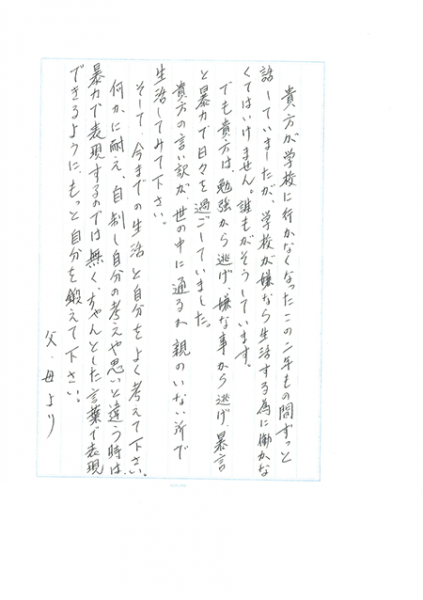 貴方が学校に行かなくなったこの二年もの間ずっと
話していましたが、学校が嫌なら生活する為に働かな
くてはいけません。誰もがそうしています。
でも貴方は、勉強から逃げ、嫌な事から逃げ、暴言
と暴力で日々を過ごしていました。
貴方の言い訳が、世の中に通るか親のいない所で
生活してみて下さい。
そして、今までの生活と自分をよく考えて下さい。
何かに耐え、自制し自分の考えや思いと違う時は、
暴力で表現するのでは無く、ちゃんとした言葉で表現
できるように、もっと自分を鍛えて下さい。
父・母より